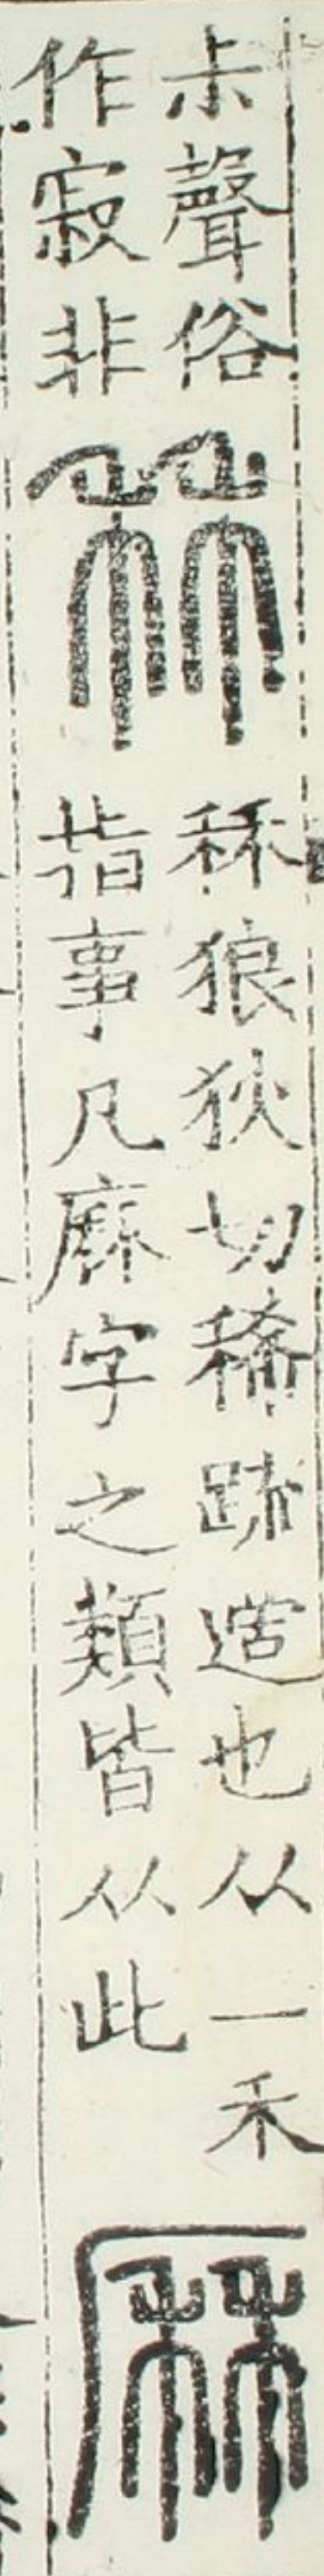 尗聲俗
作寂非
秝
秝狼狄切稀踈也从一禾
指事凡厤字之類皆从此
厤